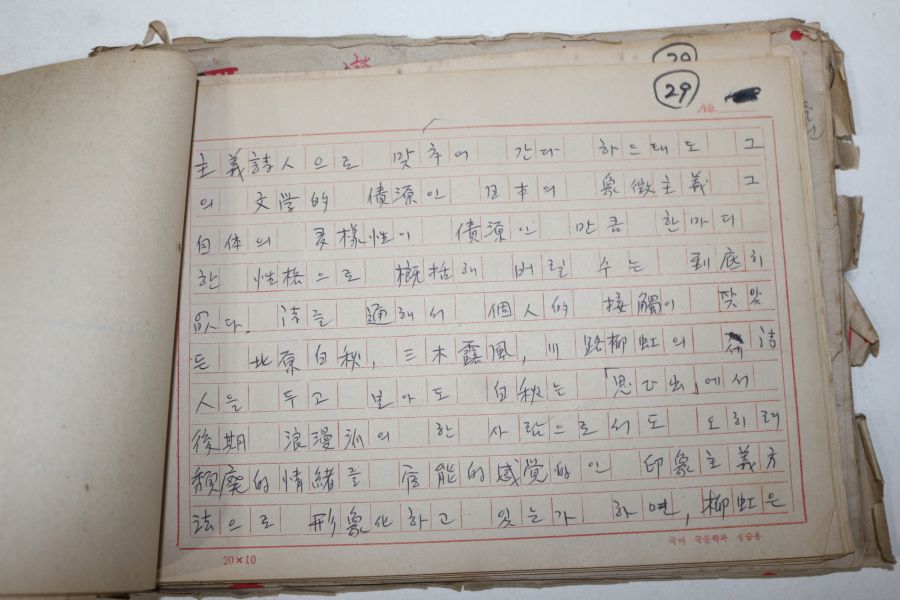 29
29
No.
主義詩人으로 맞추어 간다 하드래도 그
의 文学的 債源인 日本의 象徵主義 그
自体의 多樣性이 債源인 만큼 한마디
한 性格으로 槪括해 버릴 수는 到底히
없다. 詩를 通해서 個人的 接觸이 잦았
든 北原白秋, 三木露風, 川路柳虹의 세 詩
人을 두고 보아도 白秋는 「思ひ出」에서
後期 浪漫派의 한 사람으로서도 오히려
頹廃的情緖를 官能的感覚的인 印象主義方
法으로 形象化하고 있는가 하면, 柳虹은
20×10
국어 국문학과 실습용